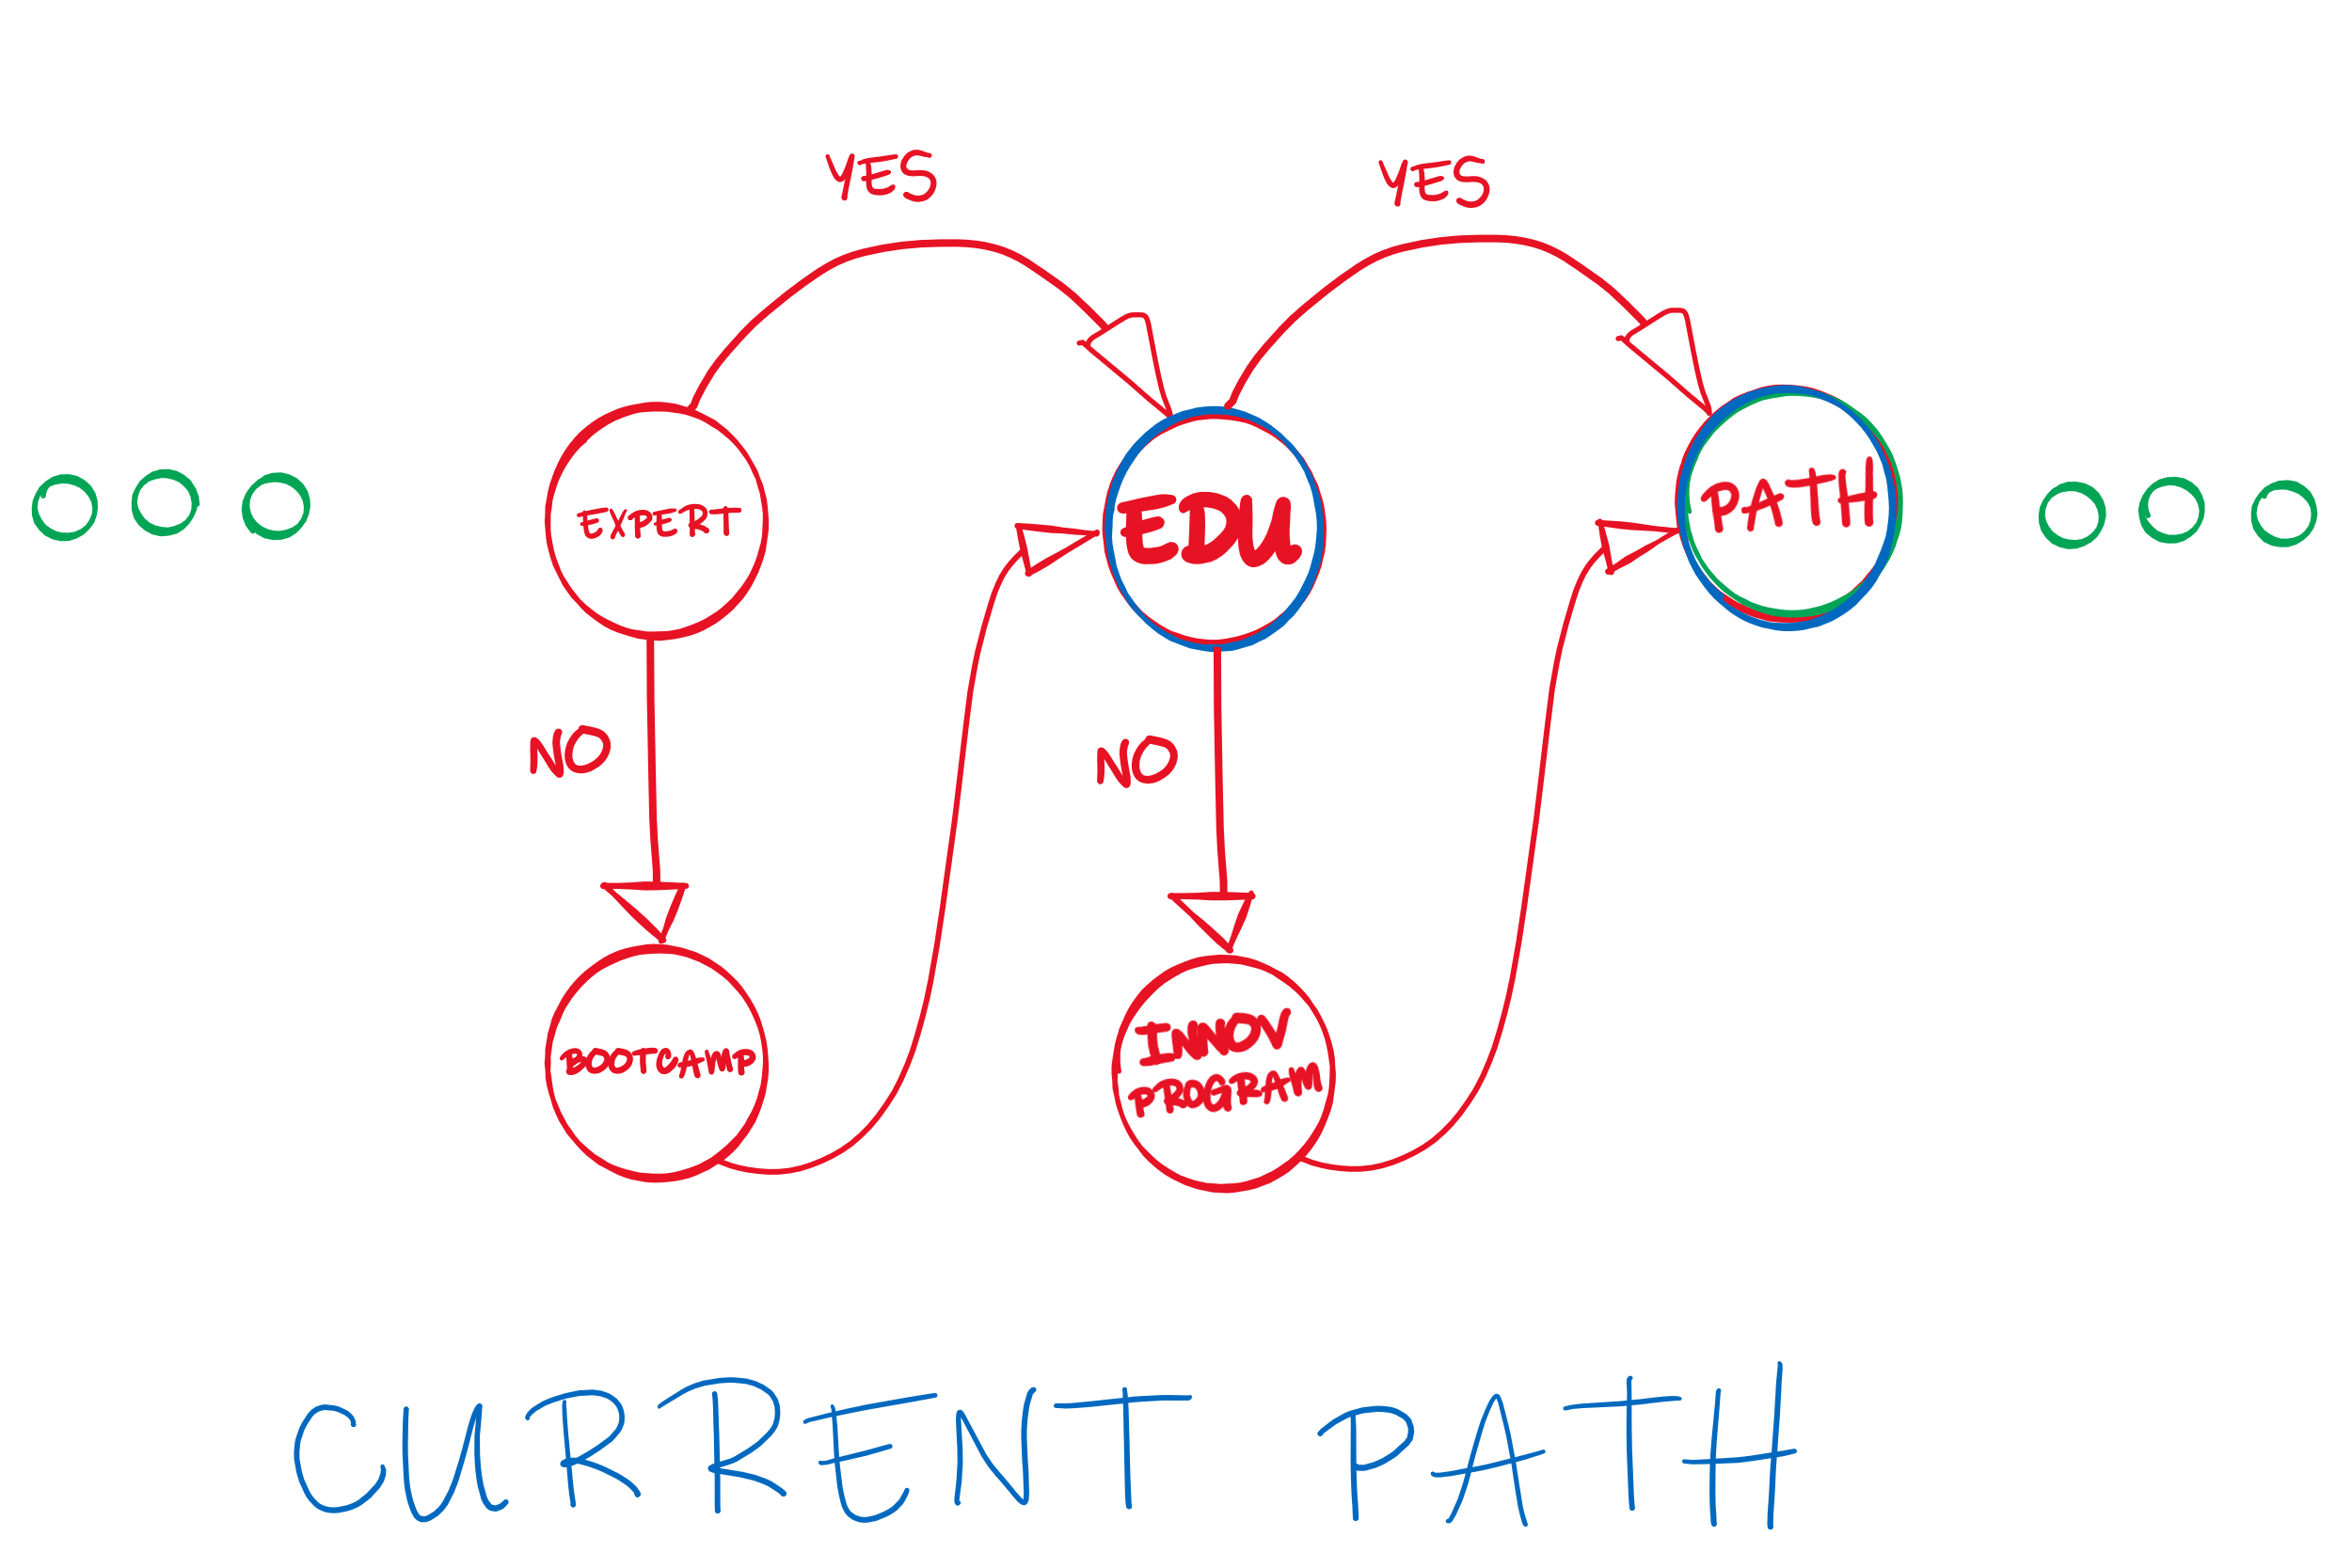 YES
YES
EXPERT
EDU
PATH
NO
NO
BOOTCAMP
INNOV
PROGRAM
CURRENT PATH